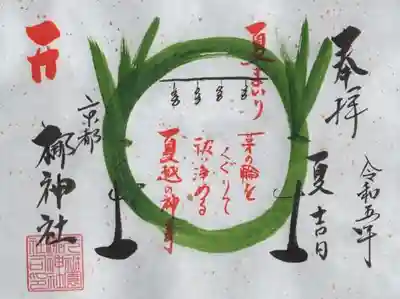 奉拝
令和五年
夏吉日
夏まいり
茅の輪を
くぐりて
祓い清める
夏越の神事
京都
梛神社